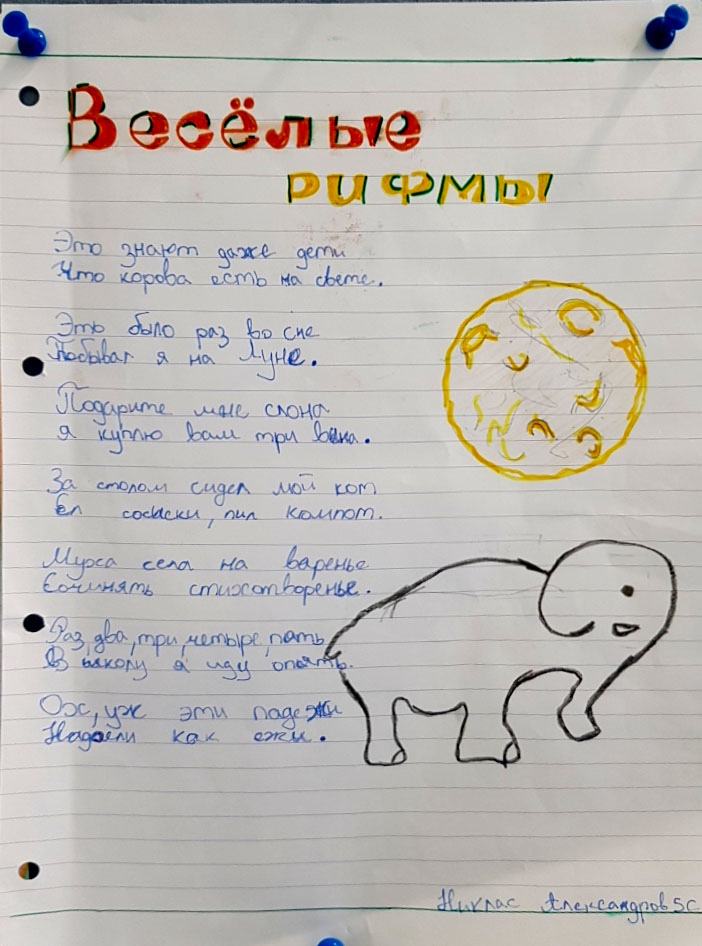 Весёлые
рифмы
Это знают даже дети
Что корова есть на свете.
Это было раз во сне
Побывал я на Луне.
Подарите мне слона
я куплю вам три вина.
За столом сидел мой кот
Ел сосиски, пил компот.
Муха села на варенье
Сочинять стихотворенье.
Раз, два, три, четыре, пять
В школу я иду опять.
Ох, уж эти падежи
Надоели как ежи.
Никлас Александров 5С